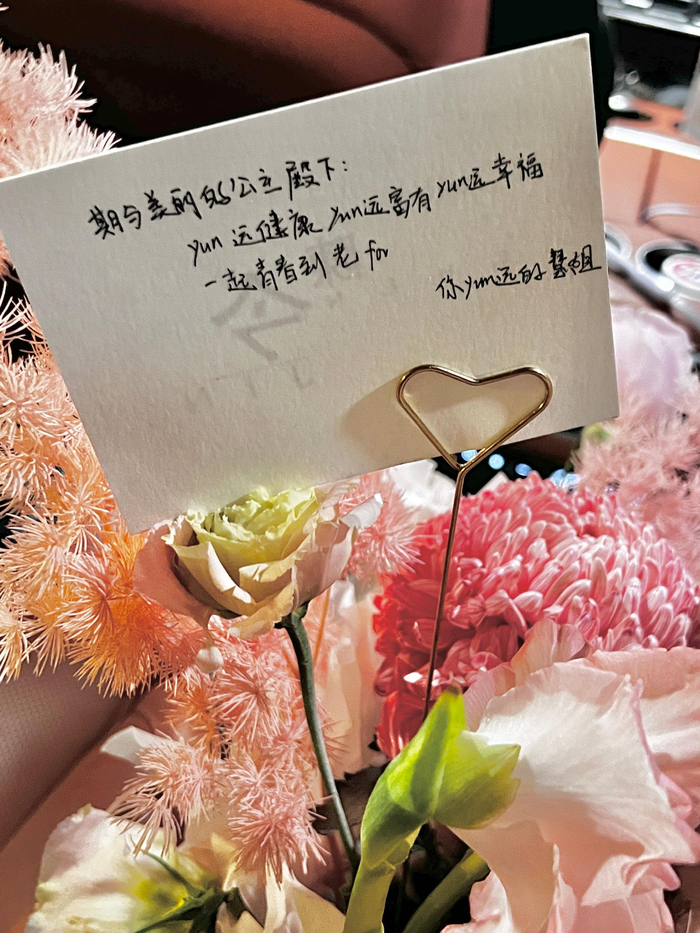 期与美丽的公主殿下：
yun远健康 yun远富有 yun远幸福
一起看到老 for
你yun远的慧姐